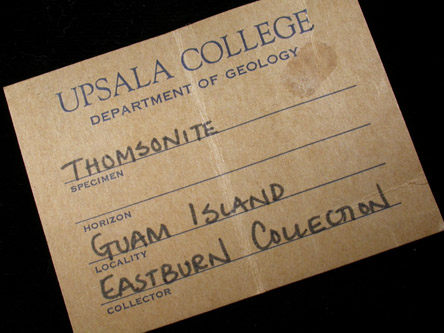 UPSALA COLLEGE
DEPARTMENT OF GEOLOGY
THOMSONITE
SPECIMEN
HORIZON
GUAM ISLAND
LOCALITY
EASTBURN COLLECTION
COLLECTOR